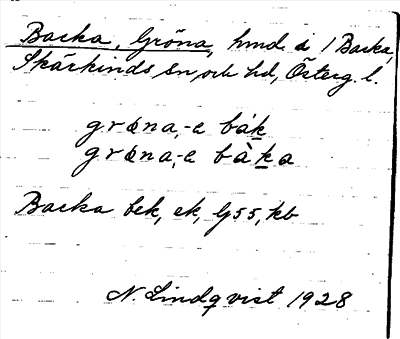 Backa, Gröna, hmd i 1 Backa,
Skärkinds sn, och hd, Österg. l.
grøna,-e bák
grøna,-e bàka
Backa bek, ek, G55, kb
N. Lindqvist 1928